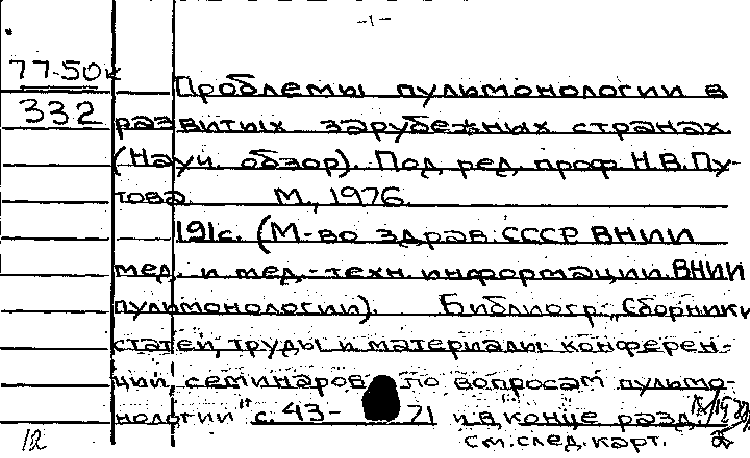 -1-
77-50к
332
Проблемы пульмонологии в
развитых зарубежных странах.
(Науч. обзор). Под ред. проф. Н.В. Пу-
това. М., 1976.
191с. (М-во здрав. СССР ВНИИ
мед. и мед.-техн. информации. ВНИИ
пульмонологии). Библиогр.: „Сборники
статей, труды и материалы конферен-
ций, семинаров по вопросам пульмо-
нологии" с. 43-71 и в конце разд.
12 см. след. карт.